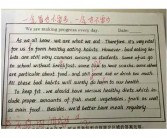 We are making progress every day. Date:
As we all know, we are what we eat. Therefore, it's important
for us to form healthy eating habits. However, bad eating ha-
bits are still very common among us students. Some of us go
to school without breakfast, some like to have snacks and others
are particular about food, and still some eat or drink too much.
All these bad habits will surely do harm to our health.
To keep fit, we should have various healthy diets, which in-
clude proper amounts of fish, meat, vegetables, fruit as well
as main food. Besides, we'd better have meals regularly.